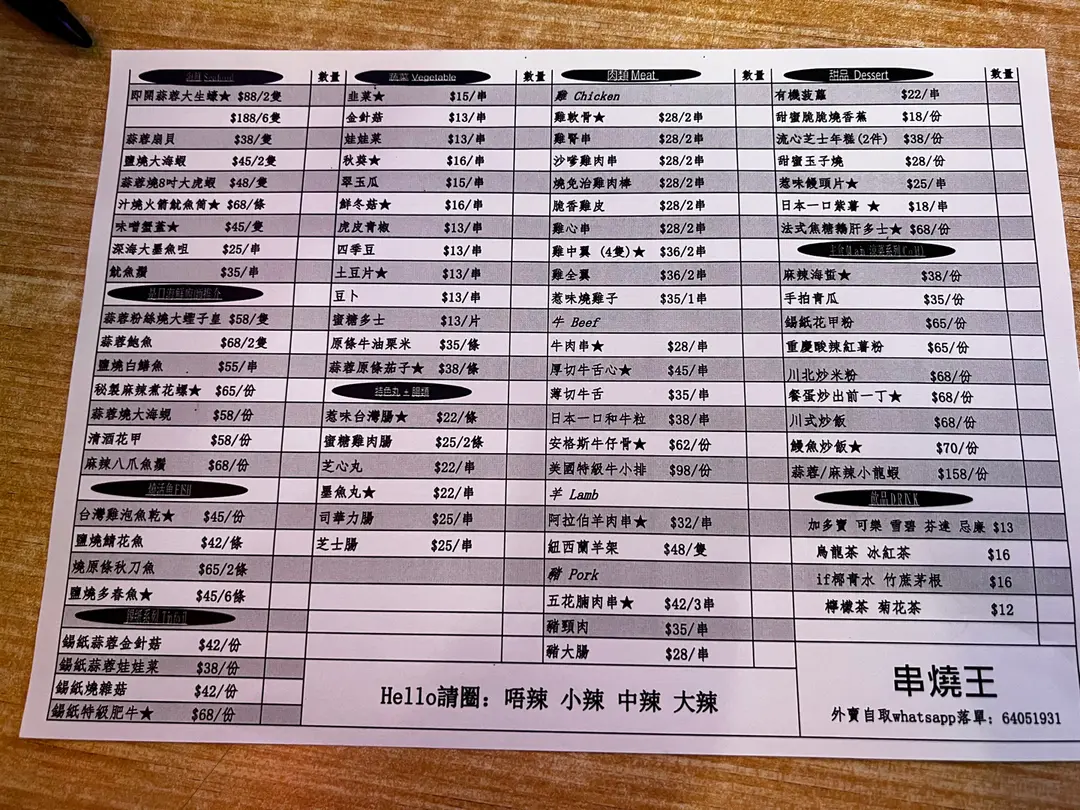 海鮮 Seafood 數量
即開蒜蓉大生蠔★ $88/2隻
$188/6隻
蒜蓉扇貝 $38/隻
鹽燒大海蝦 $45/2隻
蒜蓉燒8吋大虎蝦 $48/隻
汁燒火箭魷魚筒★ $68/條
味噌蟹蓋★ $45/隻
深海大墨魚咀 $25/串
魷魚鬚 $35/串
是日海鮮廚師推介
蒜蓉粉絲燒大蟶子皇 $58/隻
蒜蓉鮑魚 $68/2隻
鹽燒白鱔魚 $55/串
秘製麻辣煮花螺★ $65/份
蒜蓉燒大海蜆 $58/份
清酒花甲 $58/份
麻辣八爪魚鬚 $68/份
燒活魚FISH
台灣雞泡魚乾★ $45/份
鹽燒鯖花魚 $42/條
燒原條秋刀魚 $65/2條
鹽燒多春魚★ $45/6條
錫紙蒜蓉金針菇 $42/份
錫紙蒜蓉娃娃菜 $38/份
錫紙燒雜菇 $42/份
錫紙特級肥牛★ $68/份
蔬菜 Vegetable 數量
韭菜★ $15/串
金針菇 $13/串
娃娃菜 $13/串
秋葵★ $16/串
翠玉瓜 $15/串
鮮冬菇★ $16/串
虎皮青椒 $13/串
四季豆 $13/串
土豆片★ $13/串
豆卜 $13/串
蜜糖多士 $13/片
原條牛油粟米 $35/條
蒜蓉原條茄子★ $38/條
特色丸 + 腸類
惹味台灣腸★ $22/條
蜜糖雞肉腸 $25/2條
芝心丸 $22/串
墨魚丸★ $22/串
司華力腸 $25/串
芝士腸 $25/串
肉類 Meat 數量
雞 Chicken
雞軟骨★ $28/2串
雞腎串 $28/2串
沙嗲雞肉串 $28/2串
燒免治雞肉棒 $28/2串
脆香雞皮 $28/2串
雞心串 $28/2串
雞中翼 (4隻)★ $36/2串
雞全翼 $36/2串
惹味燒雞子 $35/1串
牛 Beef
牛肉串★ $28/串
厚切牛舌心★ $45/串
薄切牛舌 $35/串
日本一口和牛粒 $38/串
安格斯牛仔骨★ $62/份
美國特級牛小排 $98/份
羊 Lamb
阿拉伯羊肉串★ $32/串
紐西蘭羊架 $48/隻
豬 Pork
五花腩肉串★ $42/3串
豬頸肉 $35/串
豬大腸 $28/串
甜品 Dessert 數量
有機菠蘿 $22/串
甜蜜脆脆燒香蕉 $18/份
流心芝士年糕(2件) $38/份
甜蜜玉子燒 $28/份
惹味饅頭片★ $25/串
日本一口紫薯 ★ $18/串
法式焦糖鵝肝多士★ $68/份
麻辣海蜇★ $38/份
手拍青瓜 $35/份
錫紙花甲粉 $65/份
重慶酸辣紅薯粉 $65/份
川北炒米粉 $68/份
餐蛋炒出前一丁★ $68/份
川式炒飯 $68/份
鰻魚炒飯★ $70/份
蒜蓉/麻辣小龍蝦 $158/份
飲品DRINK
加多寶 可樂 雪碧 芬達 忌廉 $13
烏龍茶 冰紅茶 $16
if椰青水 竹蔗茅根 $16
檸檬茶 菊花茶 $12
Hello請圈: 唔辣 小辣 中辣 大辣
串燒王
外賣自取whatsapp落單: 64051931